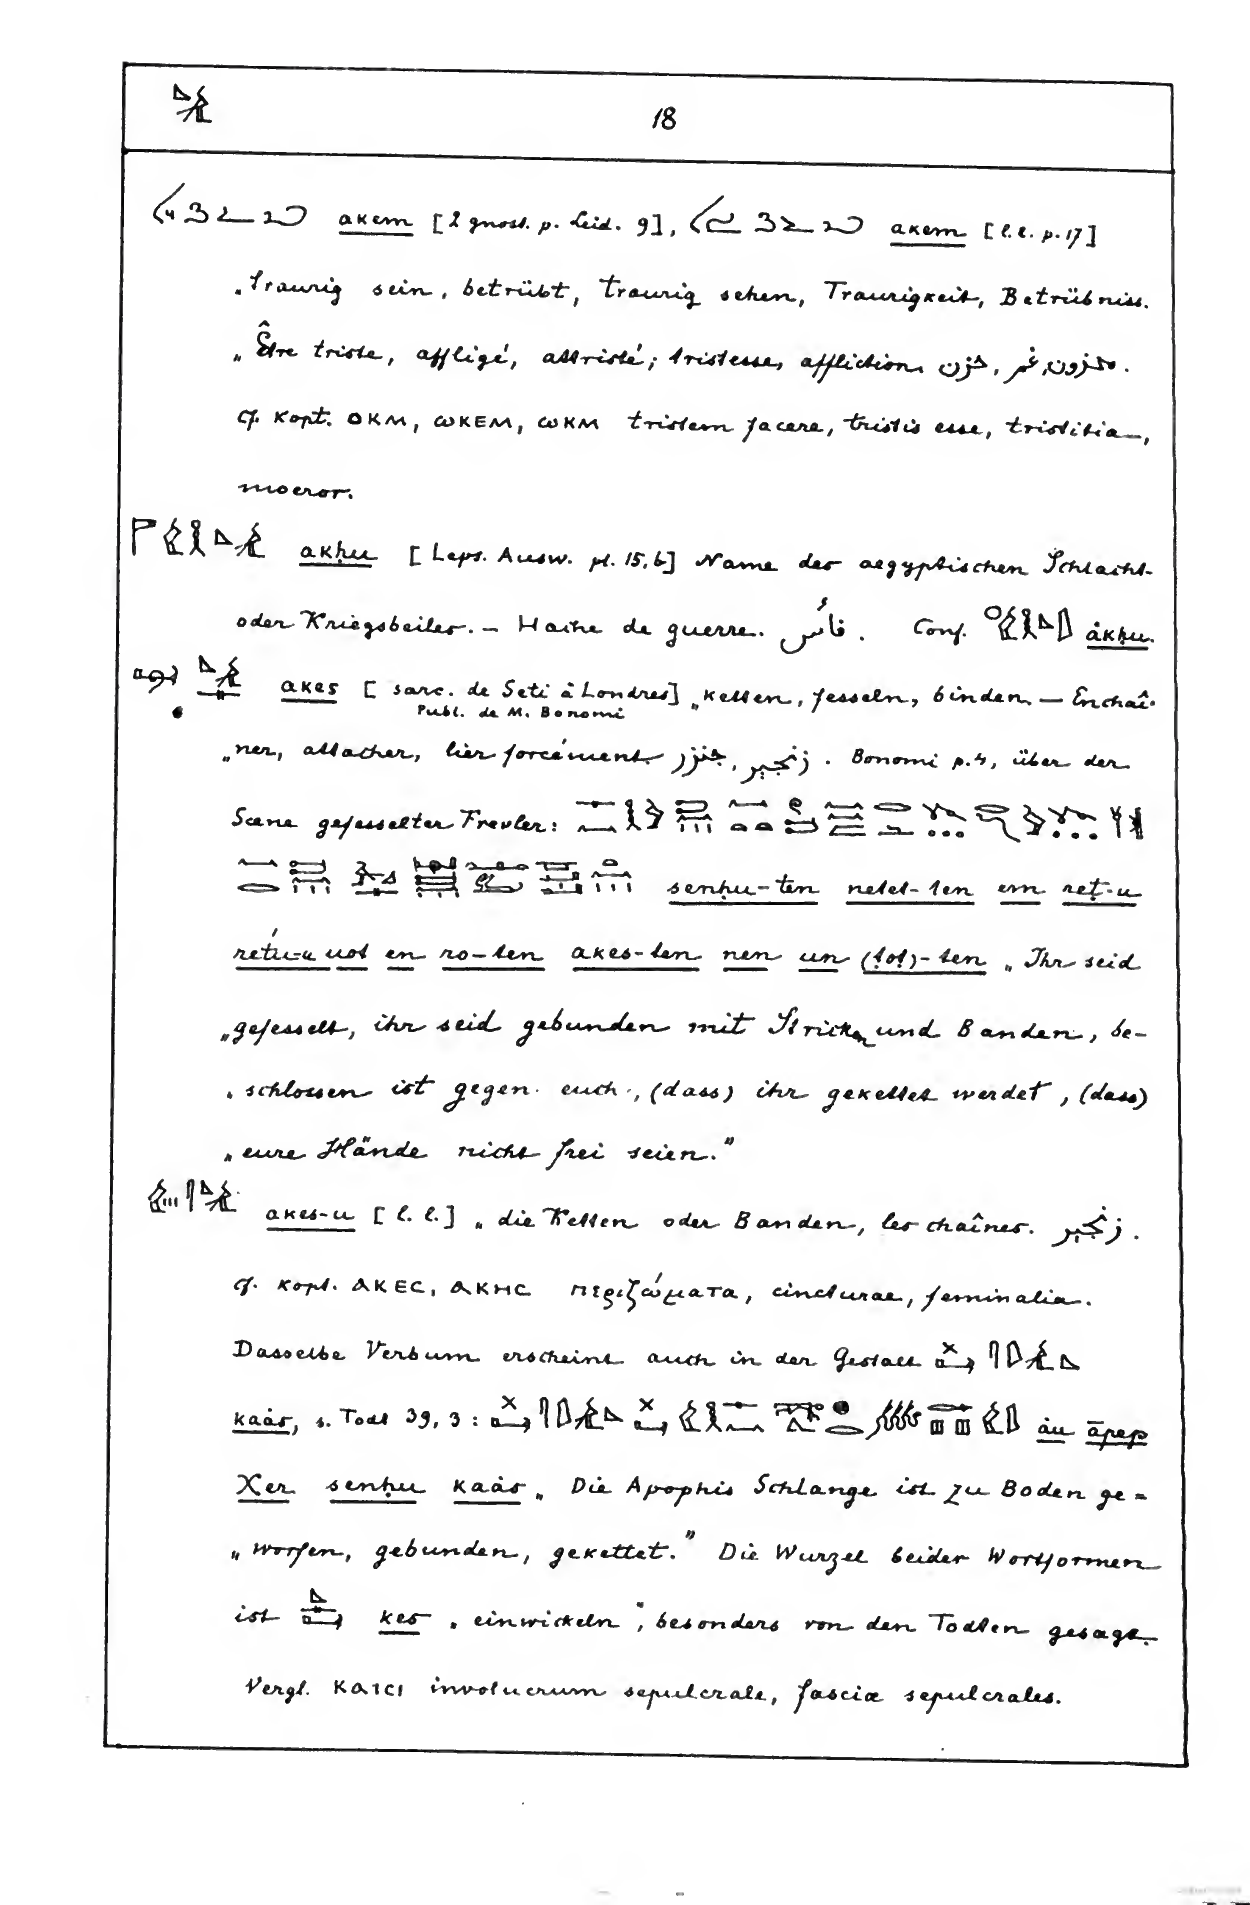 18
akem [2 gnost. p. Leid. 9], akem [l. l. p. 17]
„traurig sein, betrübt, traurig sehen, Traurigkeit, Betrübniss.
„Être triste, affligé, attristé; tristesse, affliction. حزن, غم, محزون.
cf. kopt. ⲟⲕⲙ, ⲱⲕⲉⲙ, ⲱⲕⲙ tristem facere, tristis esse, tristitia,
moeror.
akḥu [Leps. Ausw. pl. 15, b] Name des aegyptischen Schlacht-
oder Kriegsbeiles. – Hache de guerre. فأس. Conf. ȧkḥu.
akes [sarc. de Seti à Londres] „ketten, fesseln, binden. – Enchaî-
Publ. de M. Bonomi
„ner, attacher, lier forcément. زنجير, جنزر. Bonomi p. 4, über der
Scene gefesselter Frevler:
senḥu-ten netet-ten em reṭ-u
retu-u uot en ro-ten akes-ten nen un (ṭoṭ)-ten „Ihr seid
„gefesselt, ihr seid gebunden mit Stricken und Banden, be-
„schlossen ist gegen euch, (dass) ihr gekettet werdet, (dass)
„eure Hände nicht frei seien."
akes-u [l. l.] „die Ketten oder Banden, les chaînes. زنجير.
cf. kopt. ⲁⲕⲉⲥ, ⲁⲕⲏⲥ περιζώματα, cincturae, feminalia.
Dasselbe Verbum erscheint auch in der Gestalt
kaȧs, s. Todt 39, 3: ȧu āpep
χer senḥu kaȧs „Die Apophis Schlange ist zu Boden ge=
„worfen, gebunden, gekettet." Die Wurzel beider Wortformen
ist kes „einwickeln", besonders von den Todten gesagt.
Vergl. ⲕⲁⲓⲥⲓ involucrum sepulcrale, fasciæ sepulcrales.